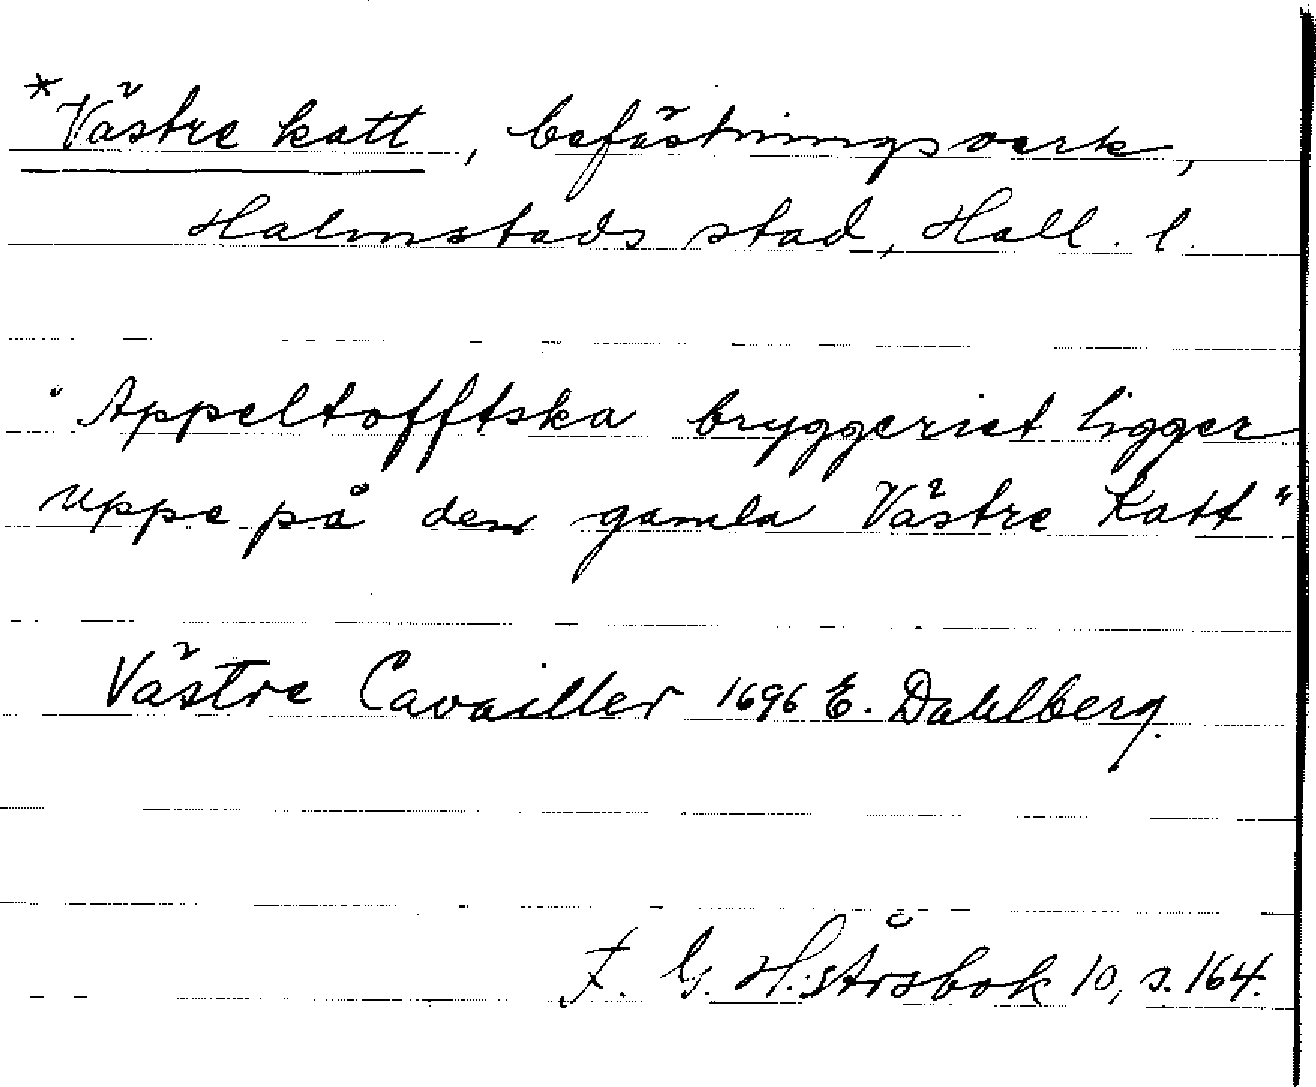 *Västre katt, befästningsverk,
Halmstads stad, Hall. l.
"Appeltofftska bryggeriet ligger
uppe på den gamla Västre Katt"
Västre Cavailler 1696 E. Dahlberg.
F. G. H:s Årsbok 10, s. 164.